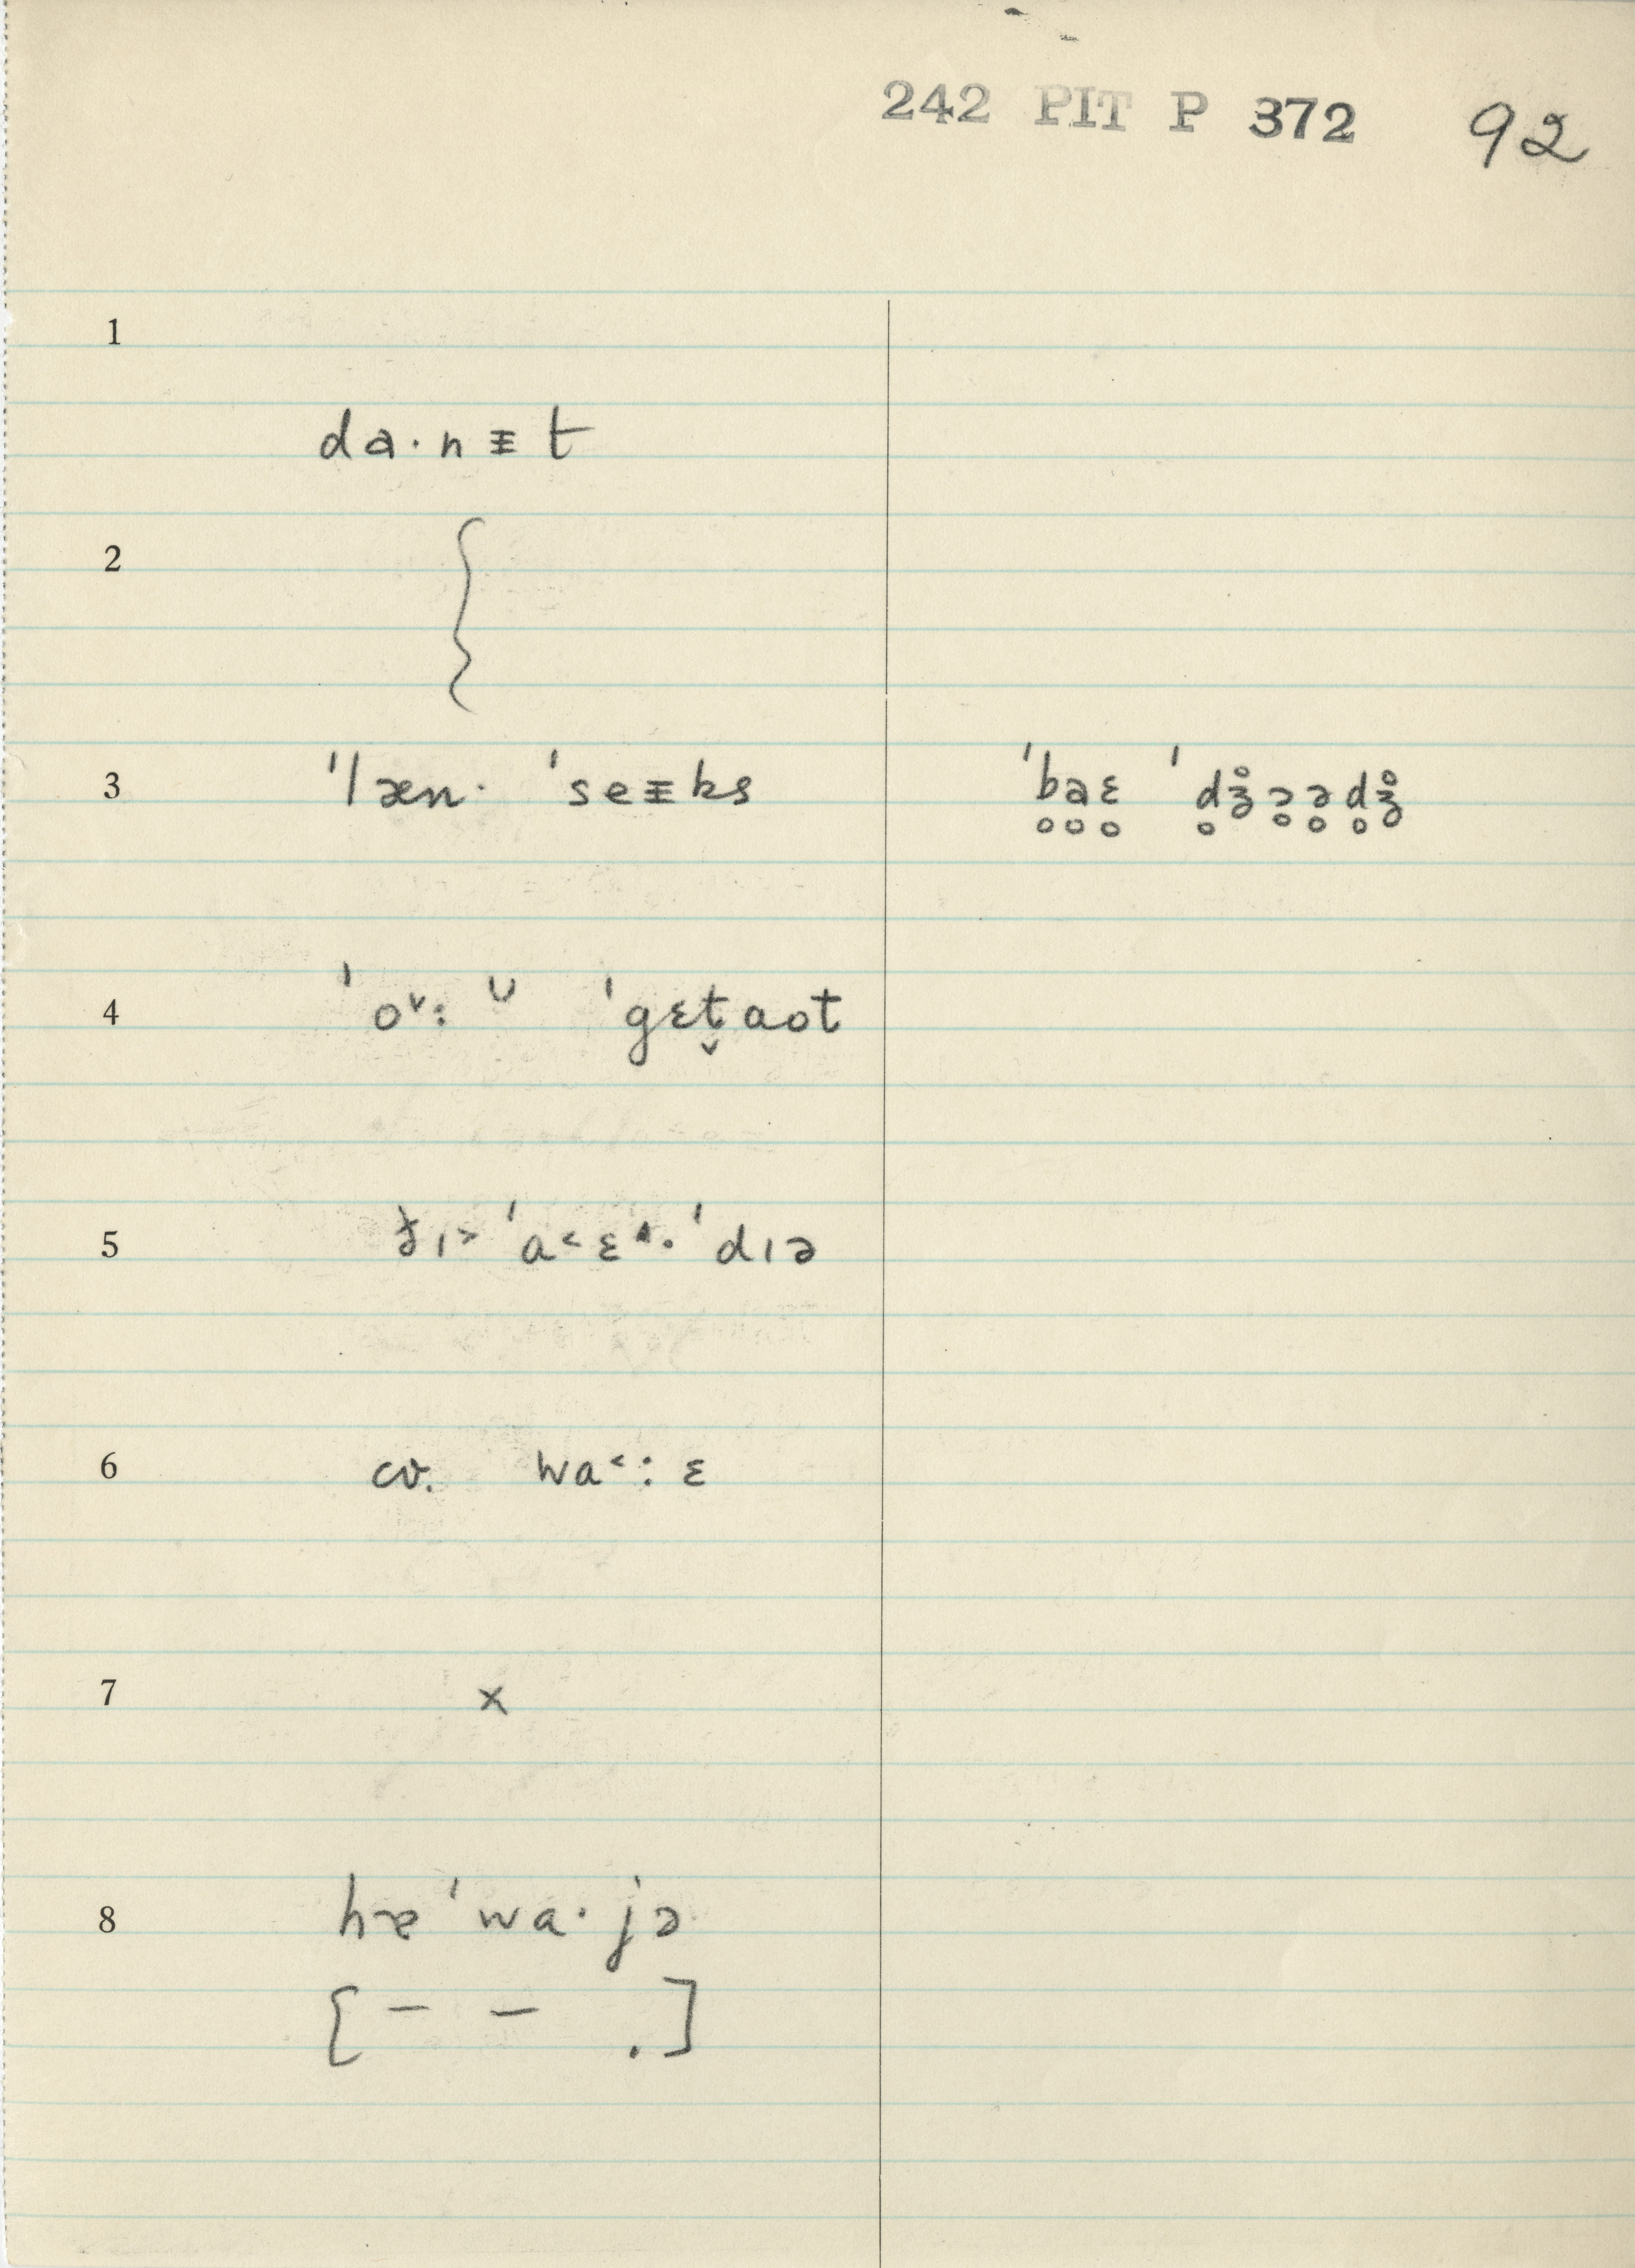 242 PIT P 372 92
1
da·nᵻt
2 {
3 ˈlæn· ˈseᵻks ˈb̥ḁɛ̥ ˈd̥ʒ̊ɔ̥ə̥d̥ʒ̊
4 ˈo˅: ᴗ ˈgɛt̬aot
5 ðɪ> ˈa<ɛ^· ˈdɪə
6 cv. wa<: ɛ
7 x
8 hæˈwa·jə
[– – .]